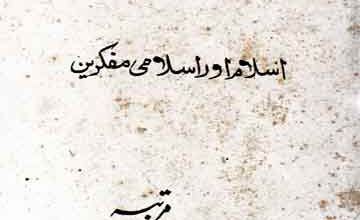 اسلام اور اسلامی مفکرین
مرتبہ